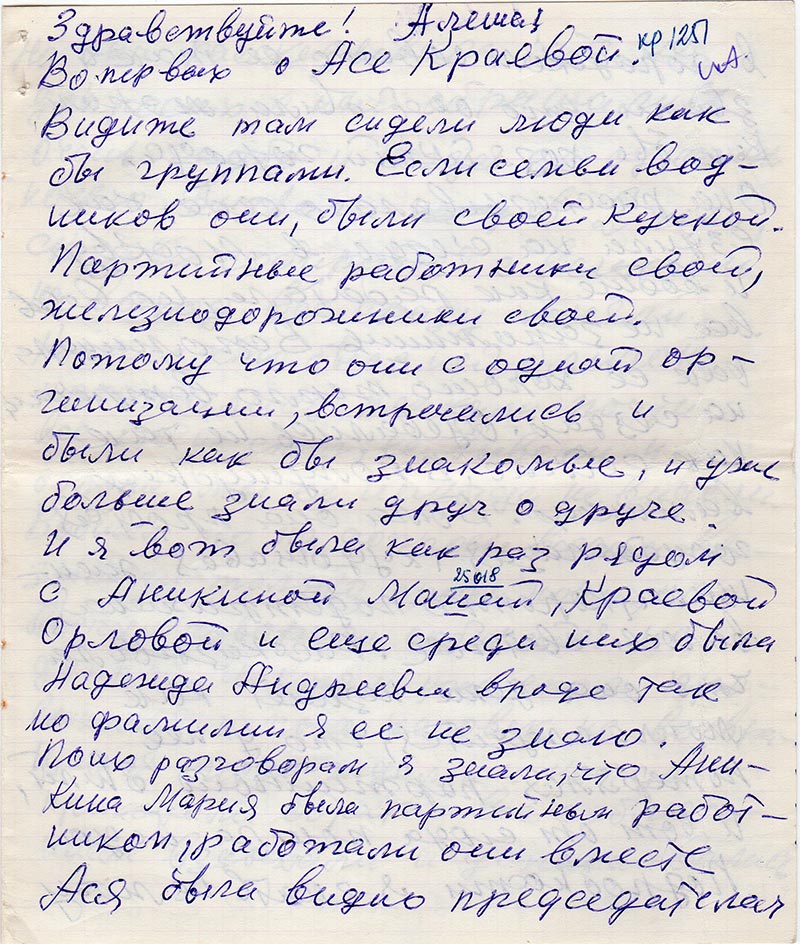 Здравствуйте! Алеша!
кр 1251
Во первых о Асе Краевой.
Видите там сидели люди как
бы группами. Если семьи вод-
ников они, были своей кучкой.
Партийные работники своей,
железнодорожники своей.
Потому что они с одной ор-
ганизации, встречались и
были как бы знакомые, и уже
больше знали друг о друге.
И я вот была как раз рядом
25018
с Аникиной Маней, Краевой
Орловой и еще среди них была
Надежда Андреевна вроде так
но фамилии я ее не знаю.
По их разговорам я знала, что Ани-
кина Мария была партийным работ-
ником, работали они вместе
Ася была видно председателем